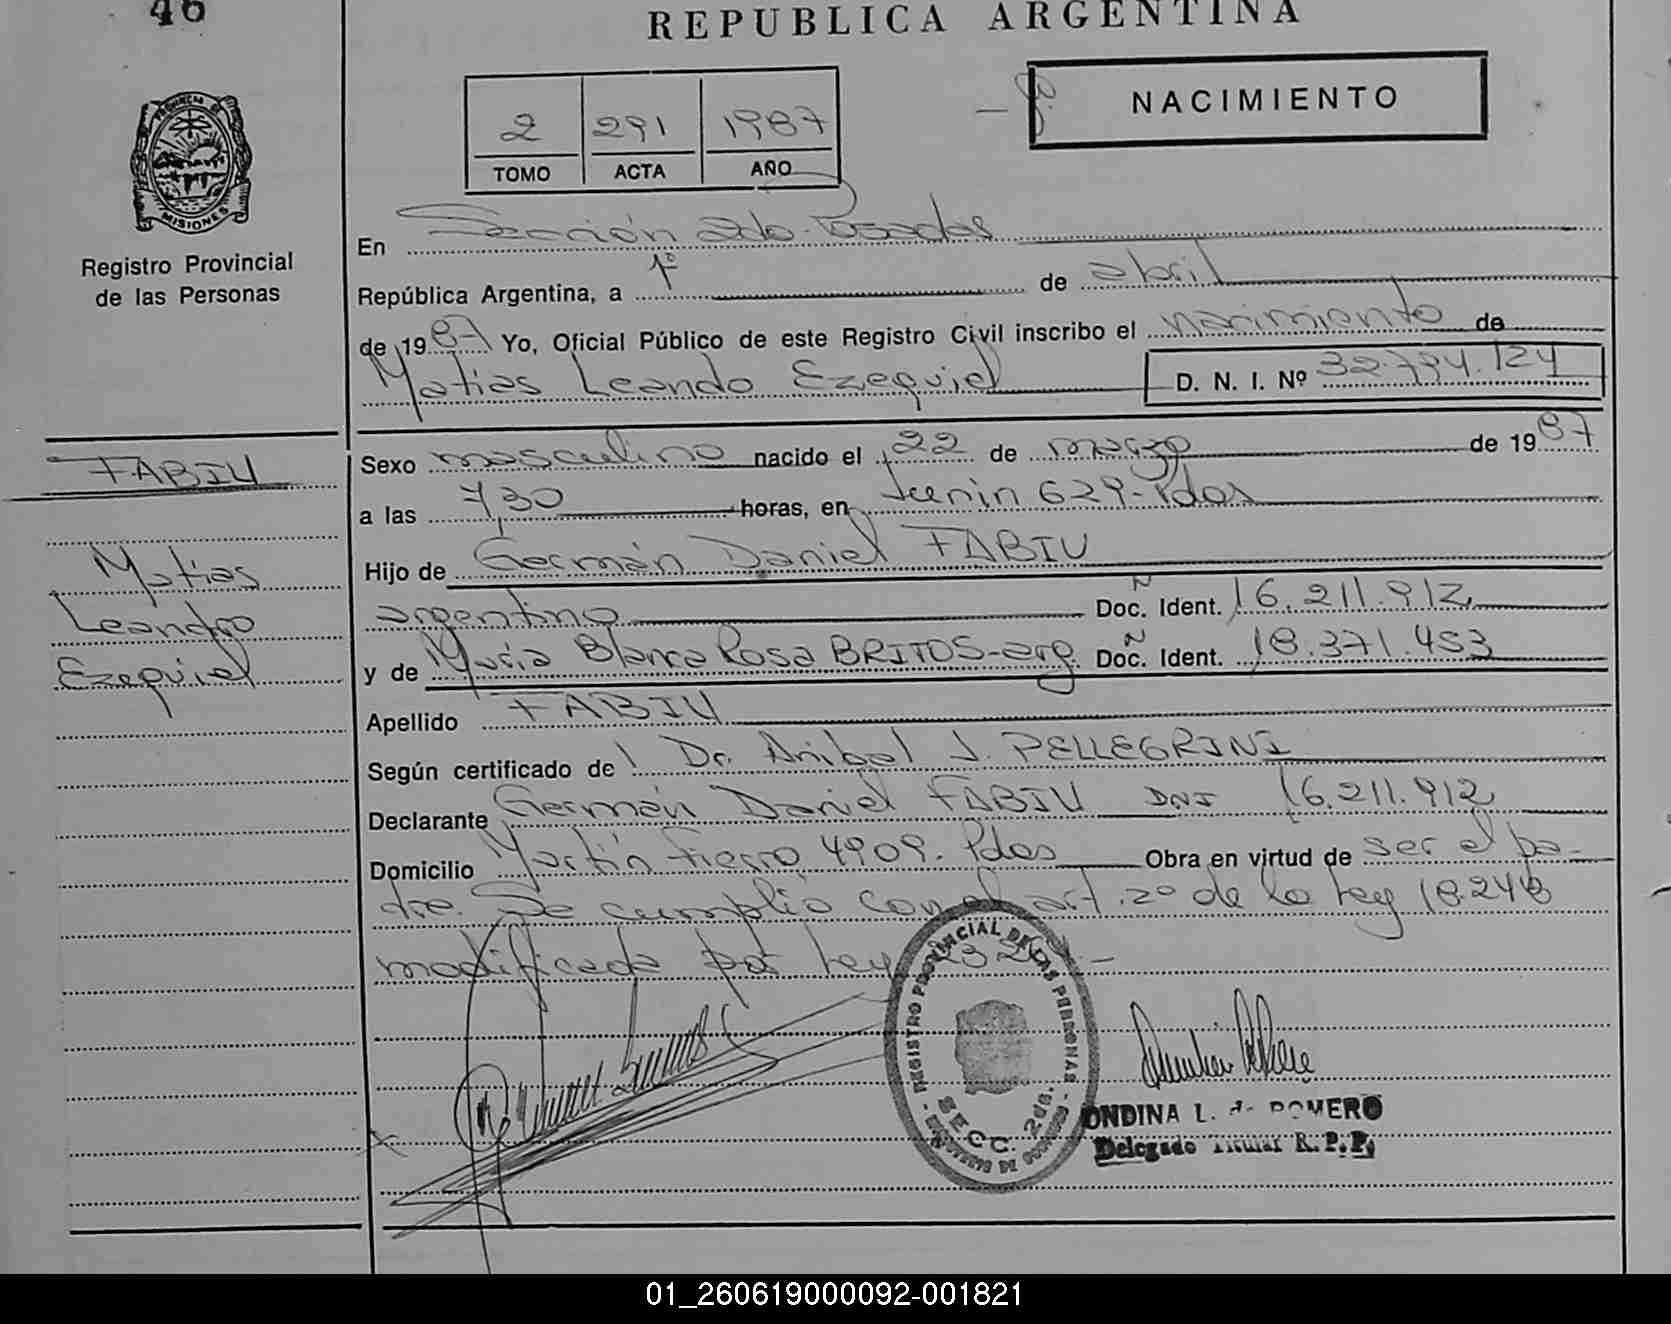 46
REPUBLICA ARGENTINA
NACIMIENTO
2 291 1987
TOMO ACTA AÑO
PROVINCIA DE MISIONES
Registro Provincial
de las Personas
En Sección 2da. Posadas
República Argentina, a 1º de abril
de 1987 Yo, Oficial Público de este Registro Civil inscribo el nacimiento de
Matias Leando Ezequiel D. N. I. Nº 32.734.124
FABIU
Matias
Leandro
Ezequiel
Sexo masculino nacido el 22 de marzo de 1987
a las 7,30 horas, en Junin 629-Pdas
Hijo de Germán Daniel FABIU
argentino Doc. Ident. N 16.211.912
y de Maria Blanca Rosa BRITOS-arg. Doc. Ident. N 18.371.453
Apellido FABIU
Según certificado de l Dr. Anibal J. PELLEGRINI
Declarante Germán Daniel FABIU DNI 16.211.912
Domicilio Martín Fierro 4909. Pdas Obra en virtud de ser el pa-
dre. Se cumplió con el art. 2º de la Ley 18.248
modificada por Ley
REGISTRO PROVINCIAL DE LAS PERSONAS
SECC. 2da.
ONDINA L. de ROMERO
Delegado Titular R. P. P.
01_260619000092-001821